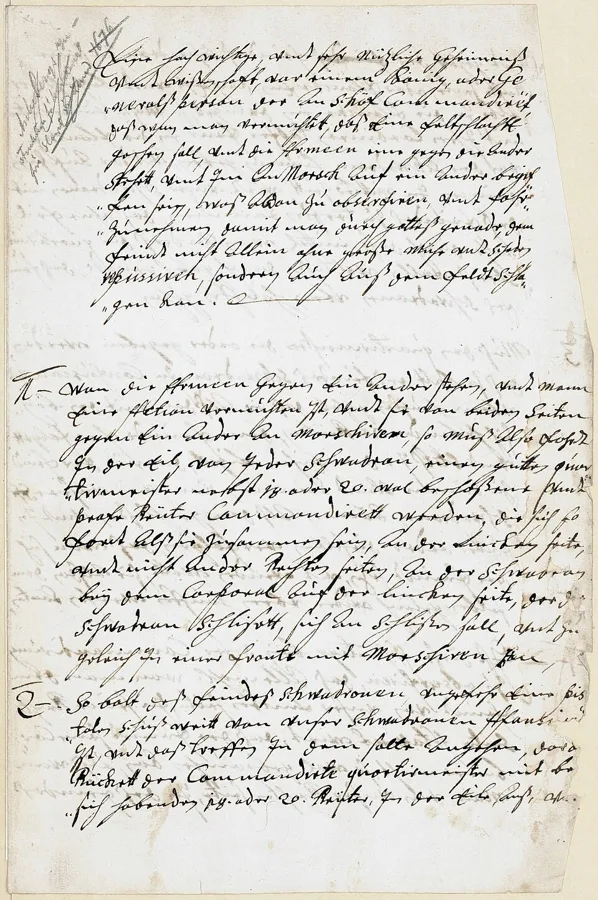 Eine hoch wichtige, undt sehr Nützliche Geheimniß
undt wißenschafft, vor einem König, oder Ge
neralß person der An Chef Commandirt
daß wan man vermuhtet, daß Eine feltschlacht
geschen soll, undt die Armeen eine gegen die Ander
stehett, undt Im An Marsch Auf ein Ander begrif
"fen sein, waß Man zu observiren, undt Vohr-
"zunehmen damit man durch gottes genade dem
feindt nicht Allein ohne große Mühe undt Schaden
Russiren, sondern Auch Auß dem feldt Schla-
"gen Kan.
1- Wan die Armeen gegen Ein Ander stehen, undt wenn
Eine Action vermuhten Ist, undt sie von beiden Seiten
gegen Ein Ander An Marschiren so Muß Also fohrt
In der Eil, von Jeder Schwadran, einen guten quar
"tirmeister nebst 18. oder 20. wol beschoßene undt
brafe Reuter Commandirett werden, die sich so
fort Alß sie zusammen sein, An der Lincken seite,
undt nicht An der Rechten seiten, An der Schwadran
bey dem Corporal Auf der lincken seite, der d
Schwadran Schlißett, sich An Schlißen soll, undt zu
geleich In einer fronte mit Marschiren kan,
2- So balt deß feindes Schwadronen ungefehr Eine pis
"tolen Schuß weitt von unser Schwadronen
Ist, undt daß treffen In dem falle Angehen,
Rückett der Commandirte quartirmeister mit be
"sich habenden 18. oder 20. Reuter, In der Eile, Auß,